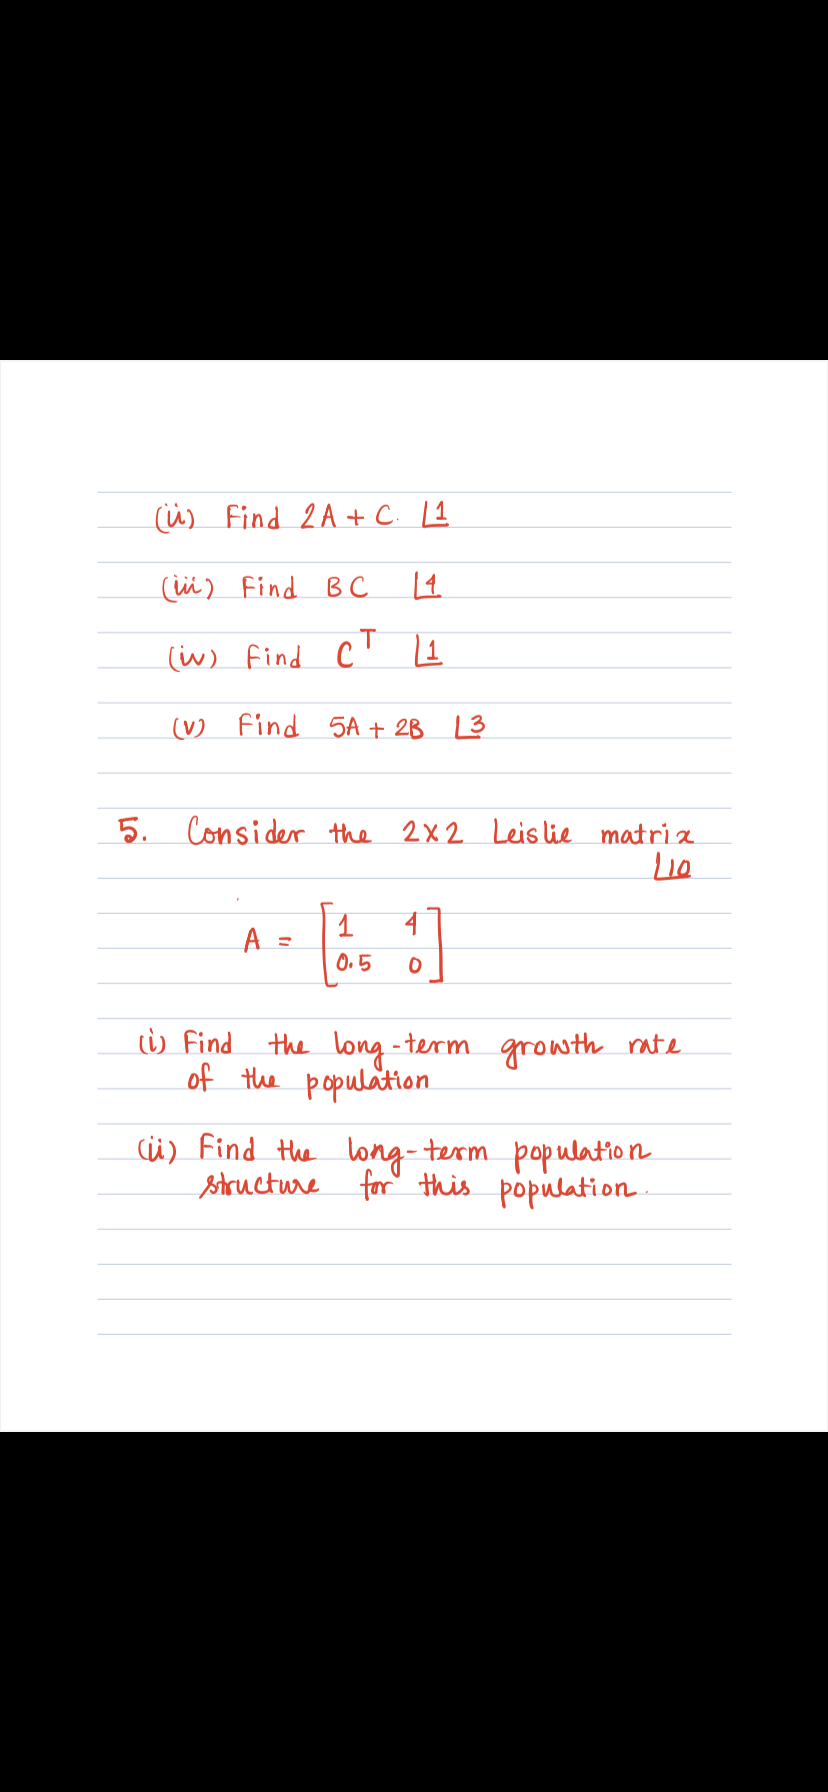 (ii) Find 2A + C. ⌊1
(iii) Find BC ⌊1
(iv) Find Cᵀ ⌊1
(v) Find 5A + 2B ⌊3
5. Consider the 2×2 Leislie matrix
⌊10
A = [1 4
0.5 0]
(i) Find the long-term growth rate
of the population
(ii) Find the long-term population
structure for this population.